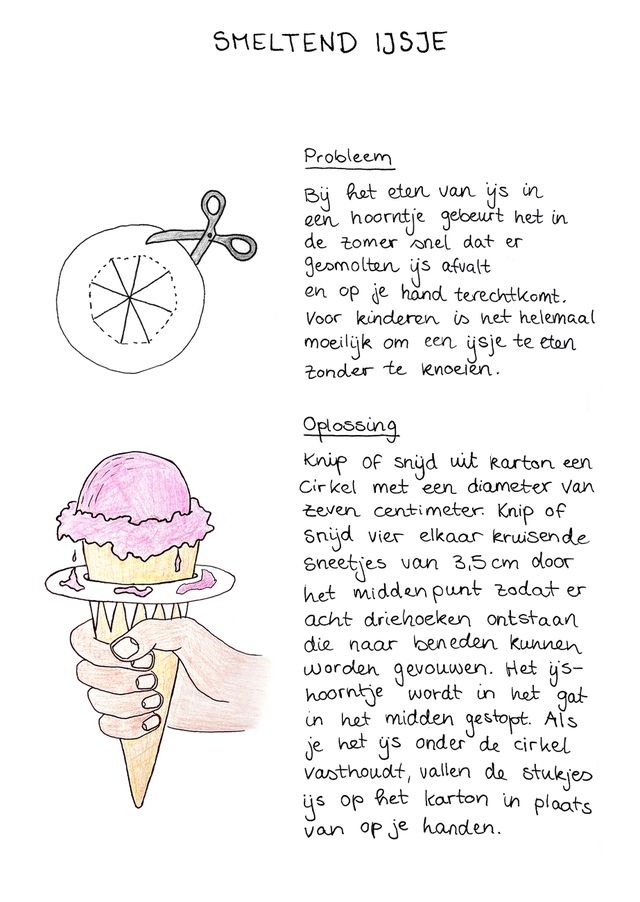 SMELTEND IJSJE
Probleem
Bij het eten van ijs in
een hoorntje gebeurt het in
de zomer snel dat er
gesmolten ijs afvalt
en op je hand terechtkomt.
Voor kinderen is het helemaal
moeilijk om een ijsje te eten
zonder te knoeien.
Oplossing
Knip of snijd uit karton een
cirkel met een diameter van
zeven centimeter. Knip of
snijd vier elkaar kruisende
sneetjes van 3,5 cm door
het middenpunt zodat er
acht driehoeken ontstaan
die naar beneden kunnen
worden gevouwen. Het ijs-
hoorntje wordt in het gat
in het midden gestopt. Als
je het ijs onder de cirkel
vasthoudt, vallen de stukjes
ijs op het karton in plaats
van op je handen.